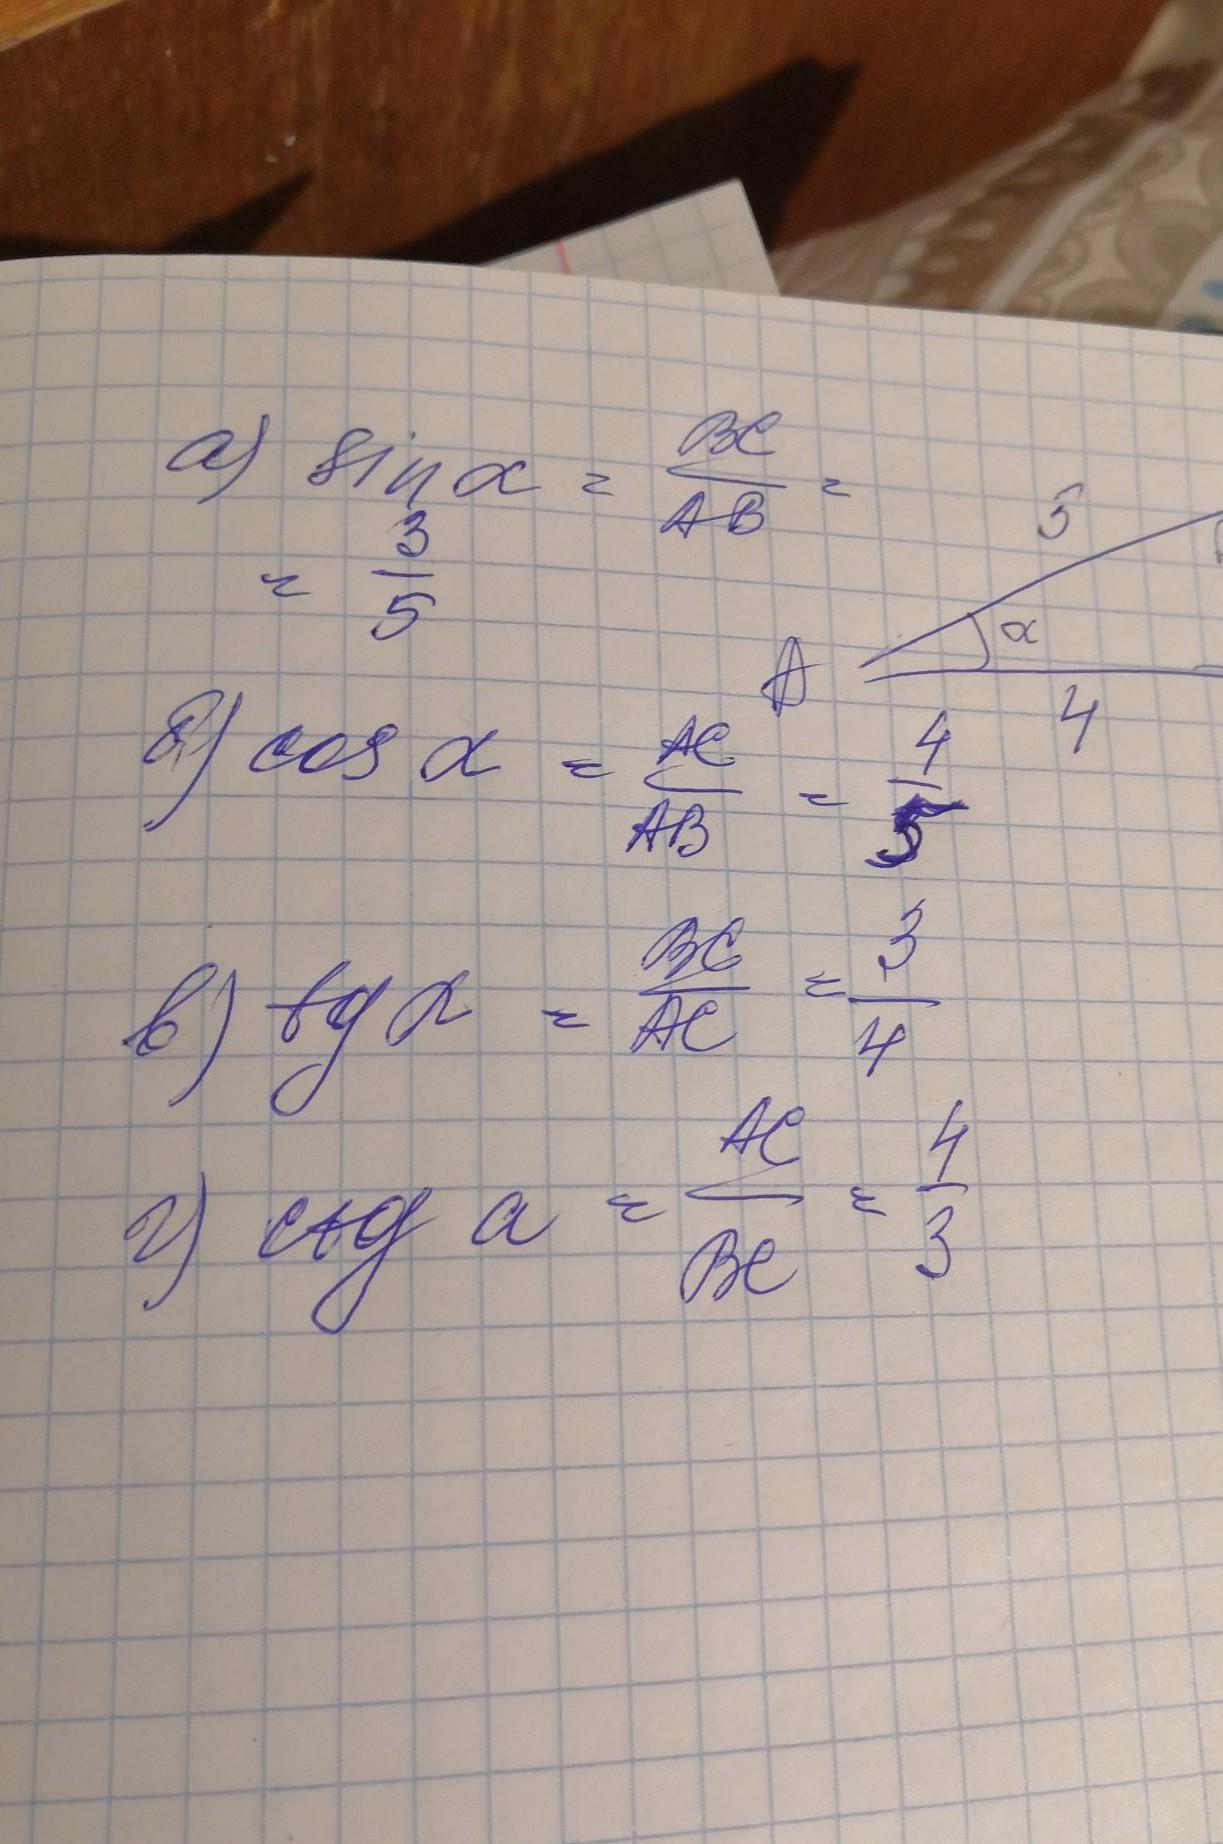 а) sin α = BC/AB =
= 3/5
5
α
A
4
б) cos α = AC/AB = 4/5
в) tg α = BC/AC = 3/4
г) ctg a = AC/BC = 4/3